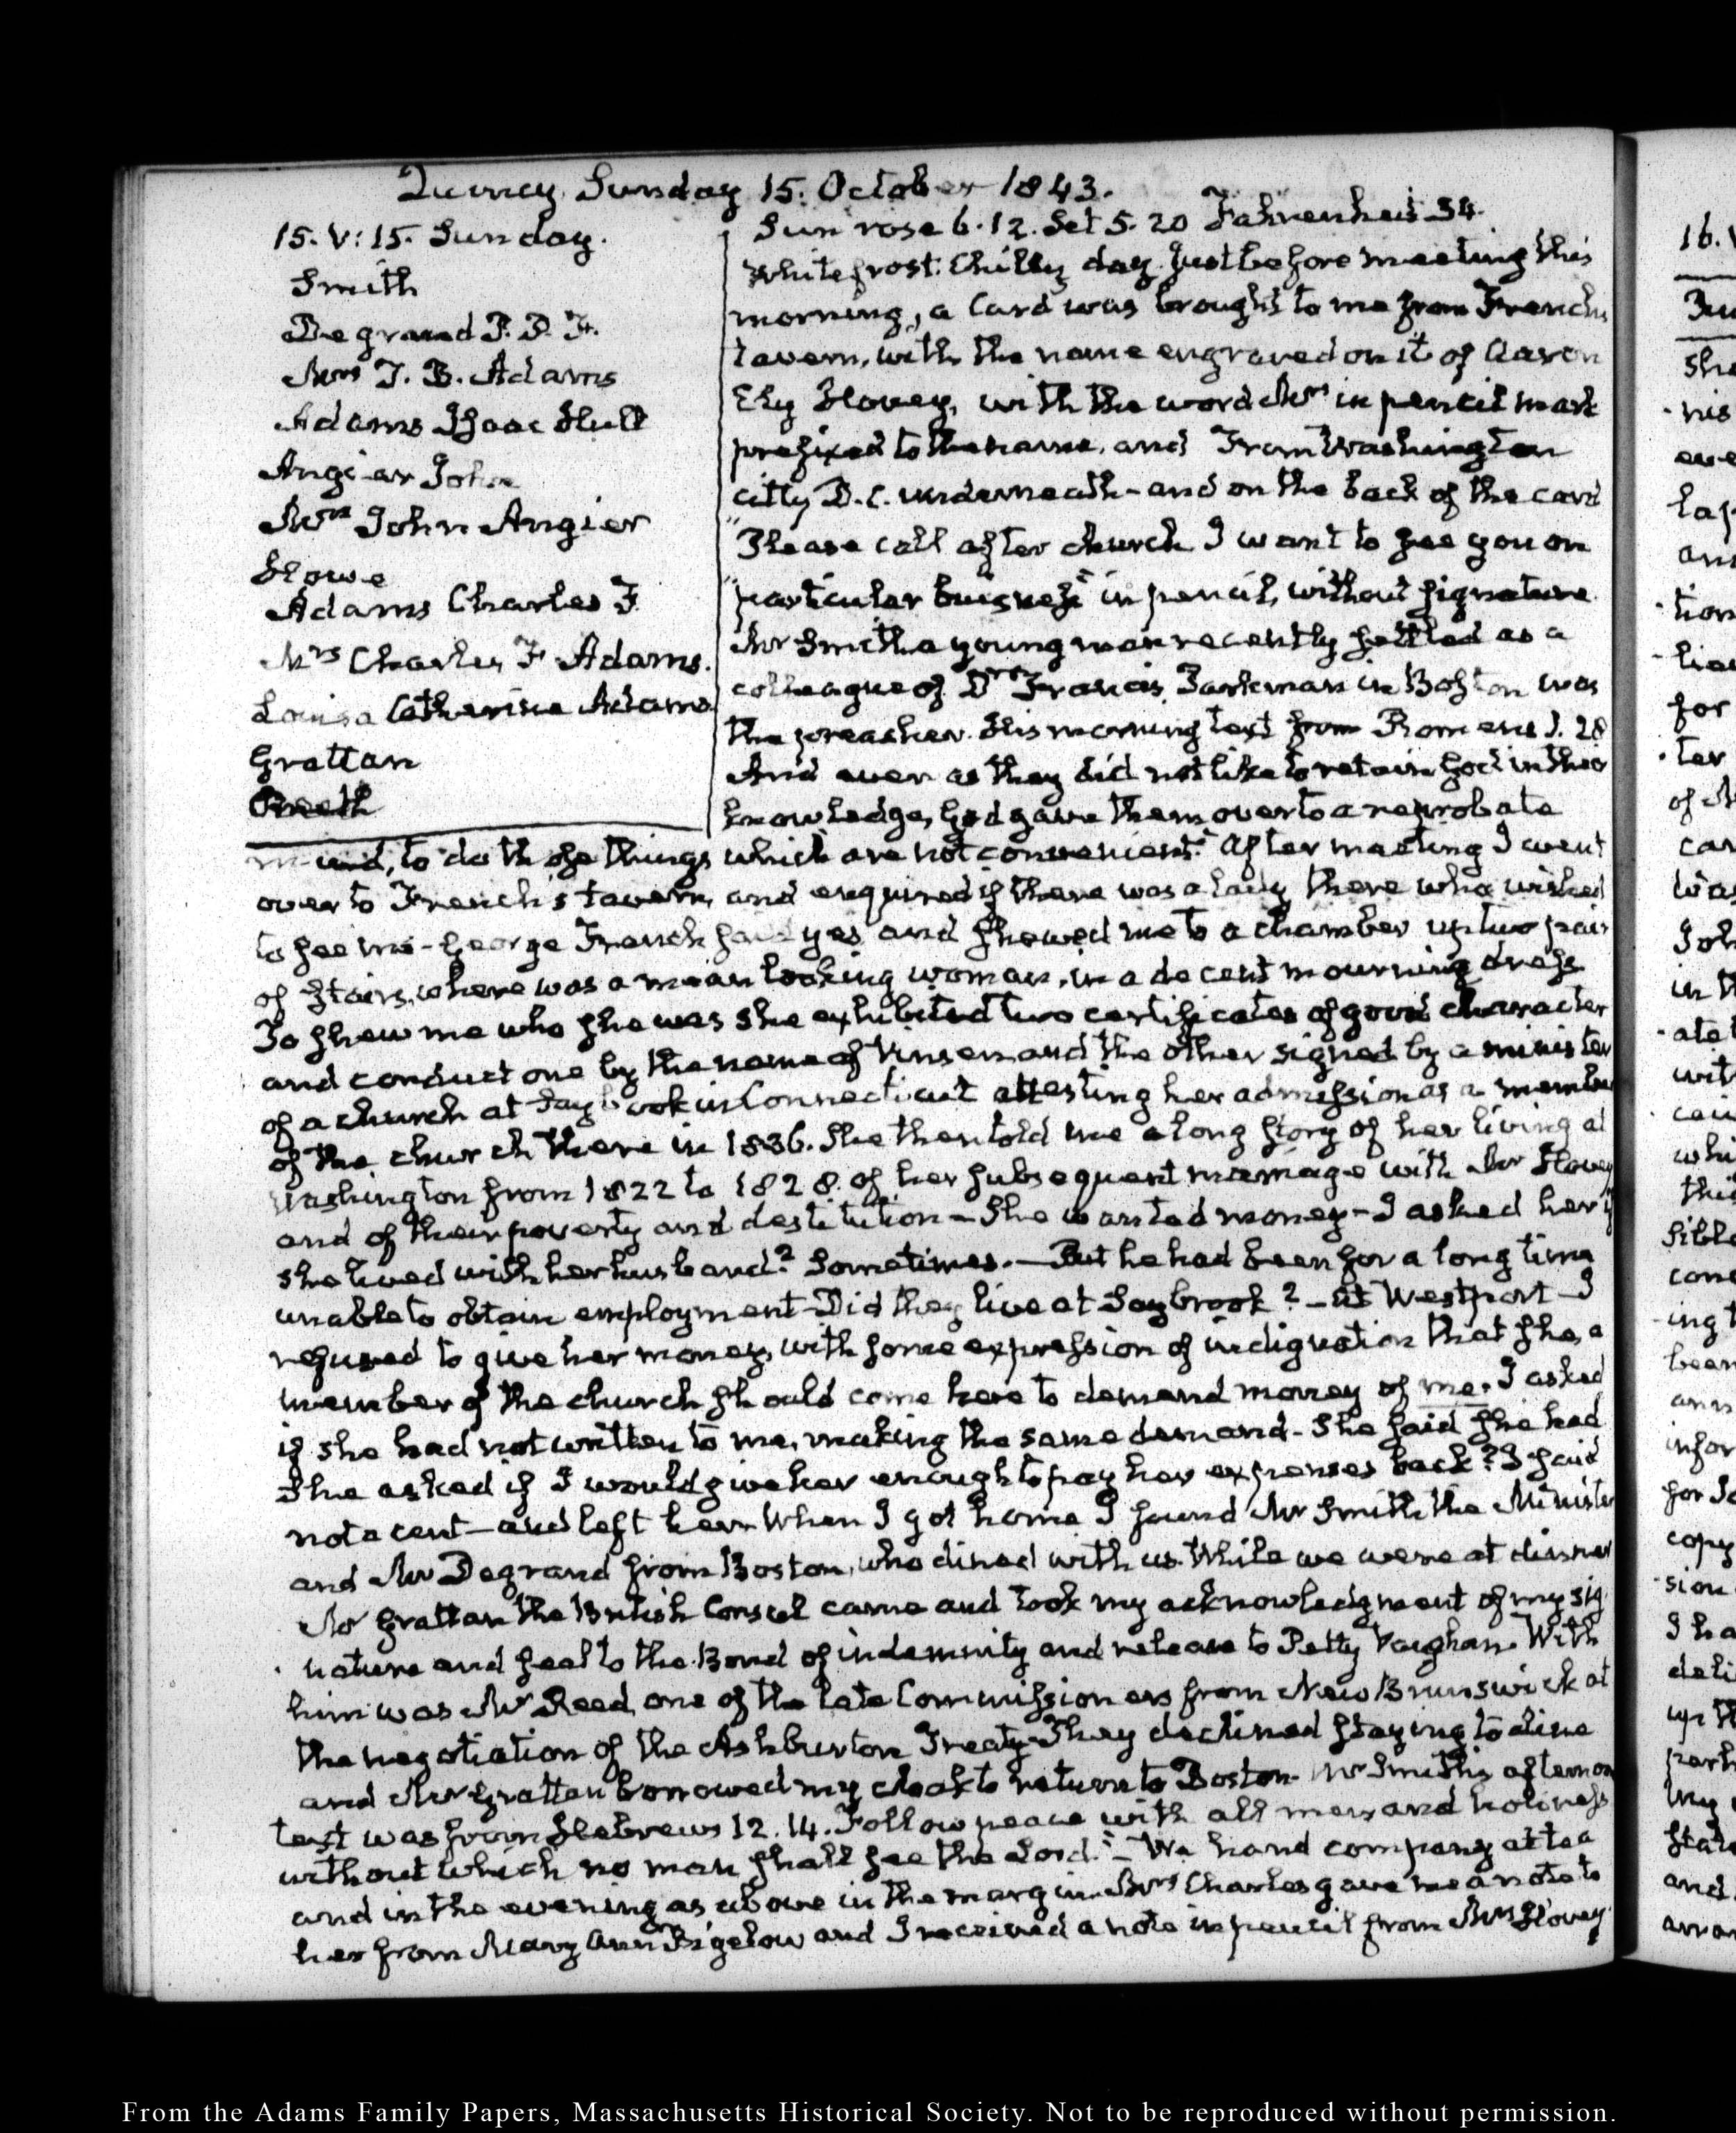 Quincy Sunday 15. October 1843.
15. V: 15. Sunday.
Smith
Degrand P. P. F.
Mrs T. B. Adams
Adams Isaac Hull
Angier John
Mrs John Angier
Howe
Adams Charles F
Mrs Charles F Adams.
Louisa Catherine Adams
Grattan
Sun rose 6. 12. Set 5. 20 Fahrenheit 34.
White frost. Chilly day. Just before meeting this
morning, a Card was brought to me from French's
tavern, with the name engraved on it of Aaron
Ely Hovey, with the word Mrs in pencil mark
prefixed to the name, and From Washington
citty D. C. underneath - and on the back of the card
"Please call after church I want to see you on
"particular buisness" in pencil, without signature.
Mr Smith a young man recently settled as a
colleague of Dr Francis Parkman in Boston was
the preacher. His morning text from Romans 1. 28
And even as they did not like to retain God in their
knowledge, God gave them over to a reprobate
mind, to do those things which are not convenient." After meeting I went
over to French's tavern, and enquired if there was a lady there who wished
to see me - George French said yes and shewed me to a chamber up two pair
of stairs, where was a mean looking woman, in a decent mourning dress.
To shew me who she was she exhibited two certificates of good character
and conduct one by the name of Vinsen and the other signed by a minister
of a church at Saybrook in Connecticut attesting her admission as a member
of the church there in 1836. She then told me a long story of her living at
Washington from 1822 to 1828. of her subsequent marriage with Mr Hovey
and of their poverty and destitution - She wanted money - I asked her if
she lived with her husband? Sometimes. - But he had been for a long time
unable to obtain employment - Did they live at Saybrook? - At Westport - I
refused to give her money, with some expression of indignation that she, a
member of the church should come here to demand money of me. I asked
if she had not written to me, making the same demand - She said she had
She asked if I would give her enough to pay her expenses back? I said
not a cent - and left her. When I got home I found Mr Smith the Minister
and Mr Degrand from Boston, who dined with us. While we were at dinner
Mr Grattan the British Consul came and took my acknowledgment of my sig
nature and seal to the Bond of indemnity and release to Petty Vaughan. With
him was Mr Reed, one of the late Commissioners from New Brunswick at
the negotiation of the Ashburton Treaty - They declined staying to dine
and Mr Grattan borrowed my cloak to return to Boston. Mr Smith's afternoon
text was from Hebrews 12. 14. Follow peace with all men and holiness
without which no man shall see the Lord." - We had company at tea
and in the evening as above in the margin. Mrs Charles gave me a note to
her from Mary Ann Bigelow and I received a note in pencil from Mrs Hovey
From the Adams Family Papers, Massachusetts Historical Society. Not to be reproduced without permission.